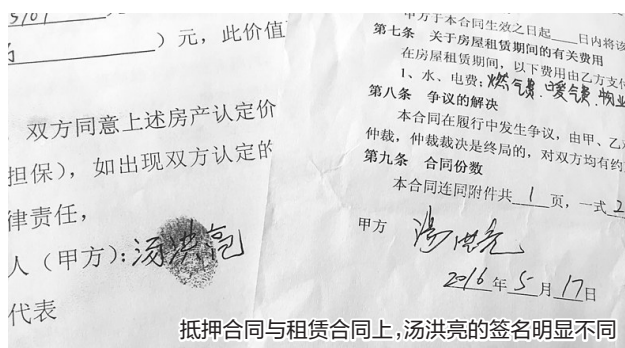 5707
）元，此价值
双方同意上述房产认定价
担保），如出现双方认定的
律责任，
人（甲方）：汤洪亮
代表
甲方于本合同生效之日起____日内将该
第七条　关于房屋租赁期间的有关费用
在房屋租赁期间，以下费用由乙方支付
1、水、电费；燃气费．暖气费．物业
第八条　争议的解决
本合同在履行中发生争议，由甲、乙
仲裁，仲裁裁决是终局的，对双方均有约
第九条　合同份数
本合同连同附件共__1__页，一式2
甲方　汤洪亮
2016年5月17日
抵押合同与租赁合同上，汤洪亮的签名明显不同